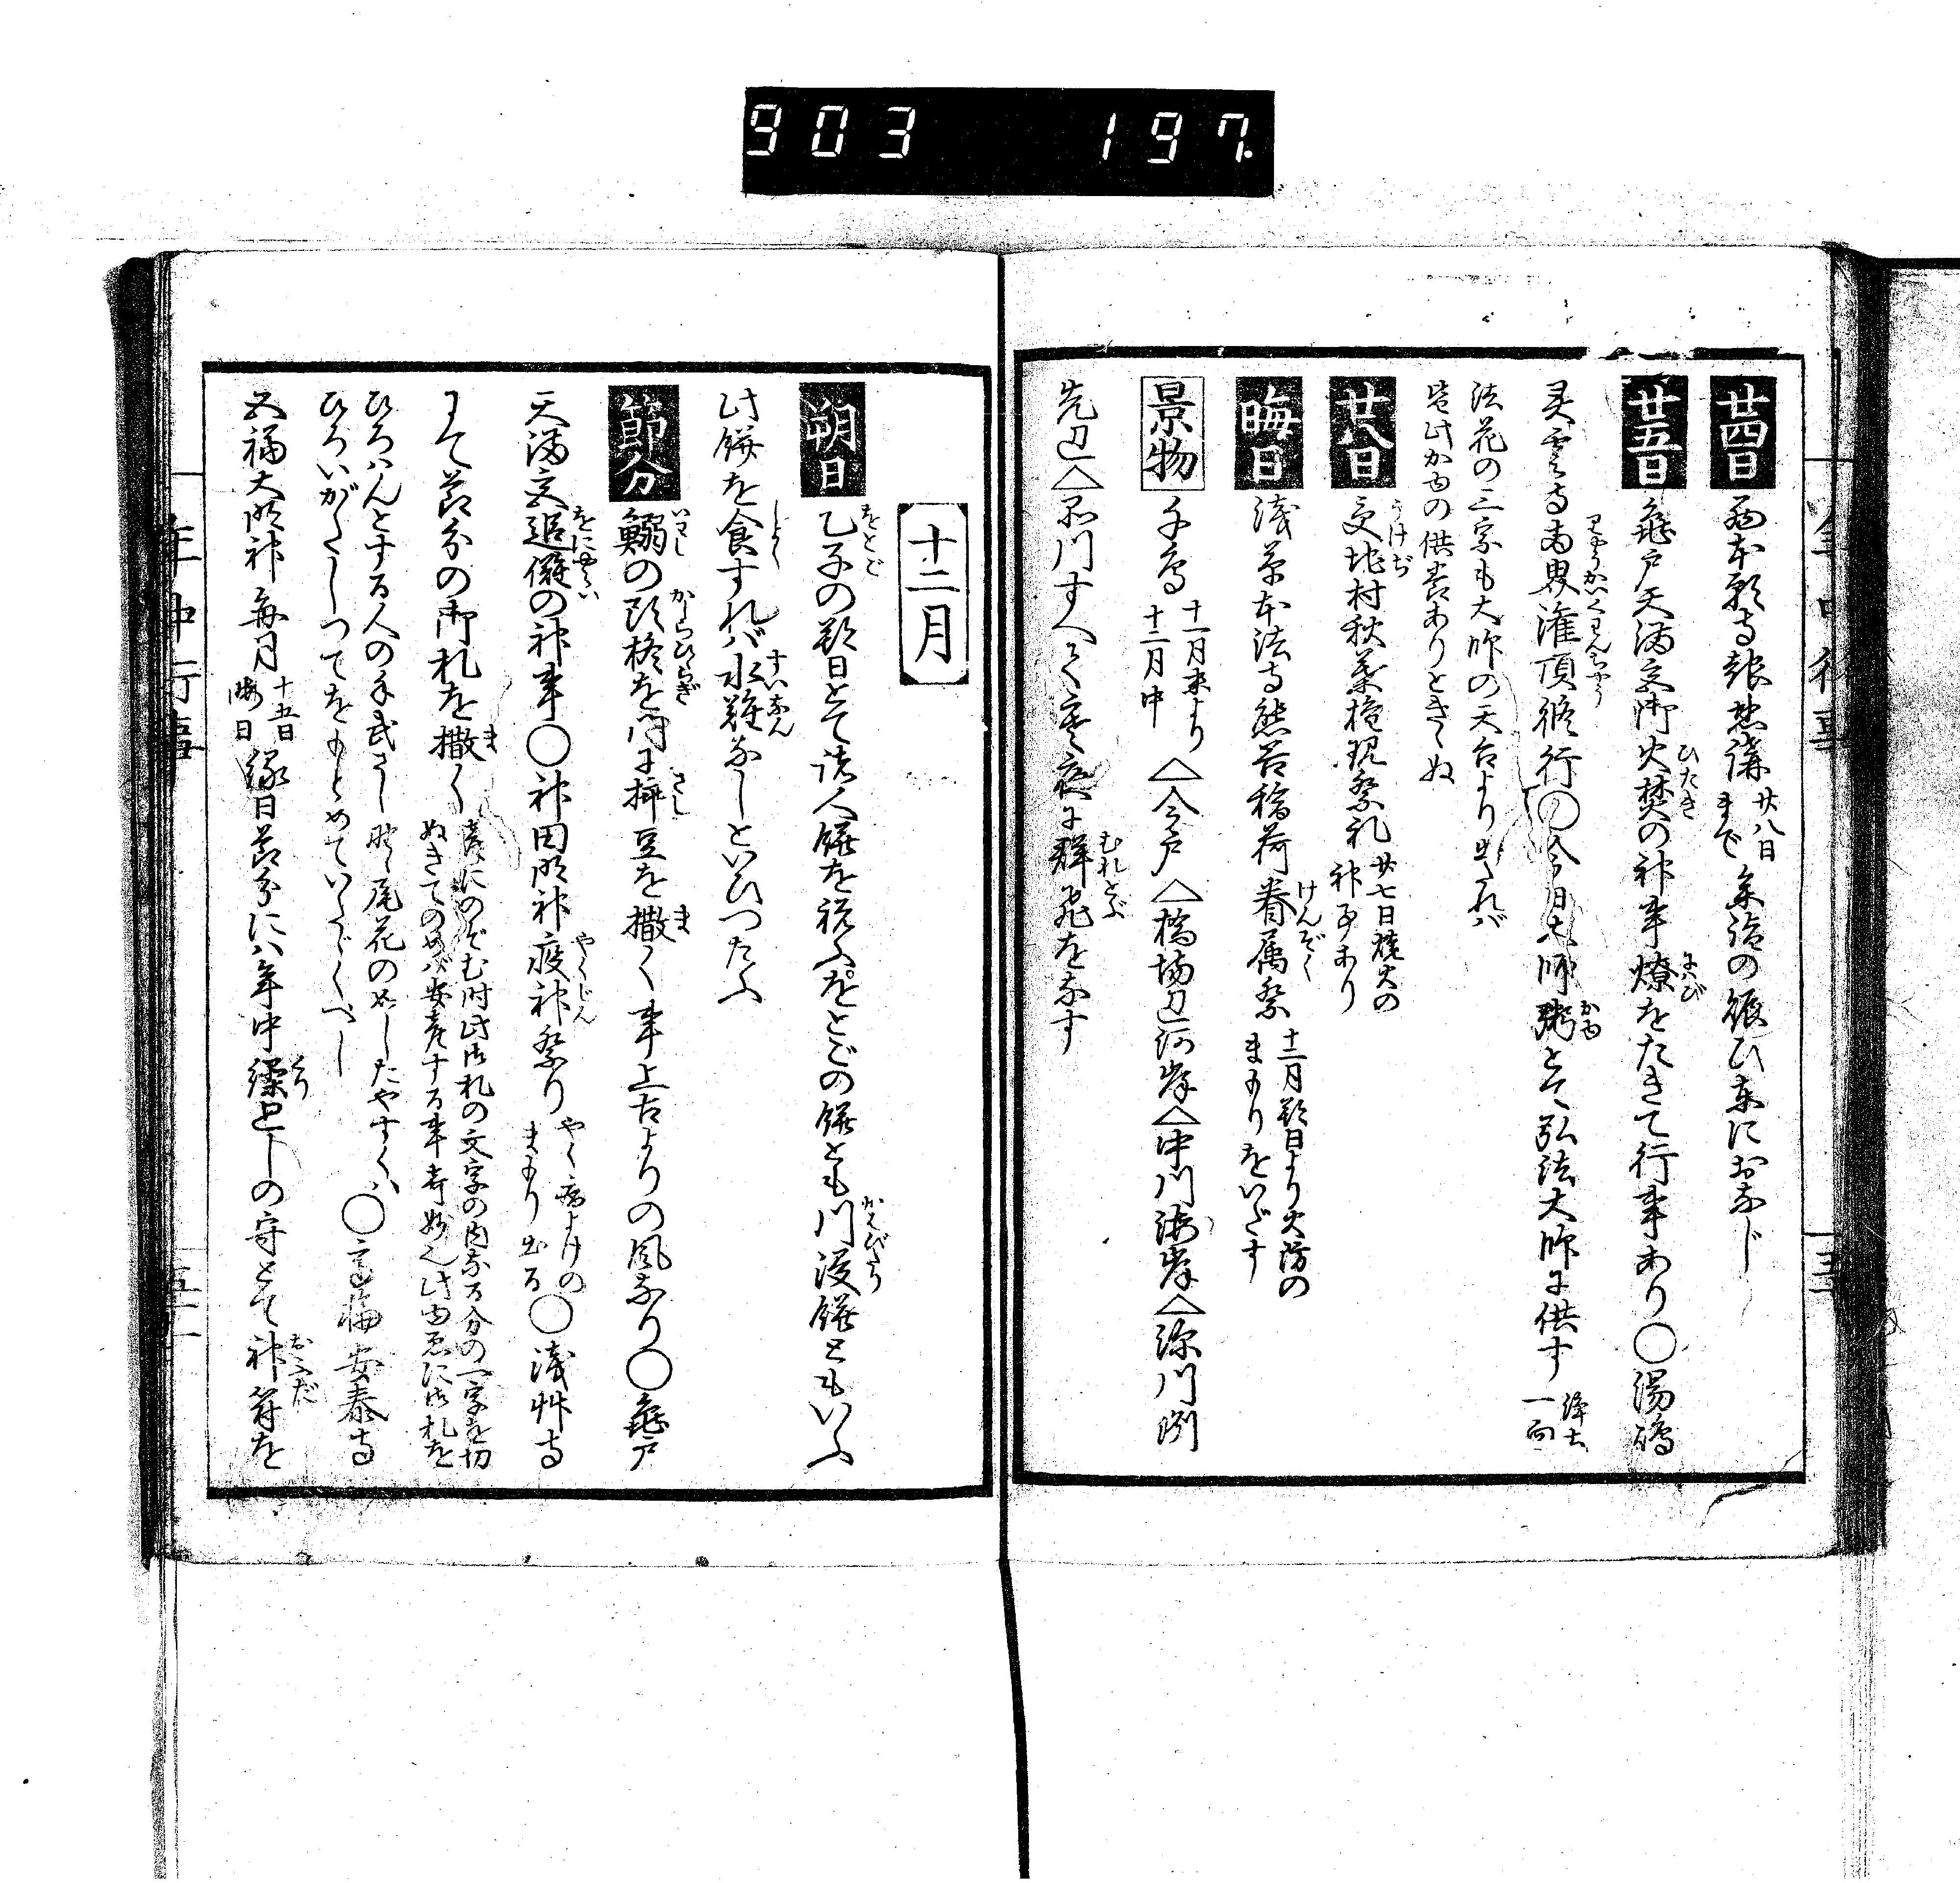 903 197.
廿四日 西本願寺報恩講 廿八日まで 参詣の賑ひ東におなじ
廿五日 亀戸天満宮御火焚の神事燎をたきて行事あり〇湯嶋
灵雲寺両界灌頂修行〇今日大師粥とて弘法大師に供す
法花の三宗も大師の天台より出たれば
此かゆの供養ありときゝぬ
廿八日 受地村秋葉権現祭礼 廿七日焼火の神事あり
晦日 浅草本法寺熊谷稲荷眷属祭 十二月朔日より火防のまもりをいだす
景物 千鳥 十一月末より十二月中 △今戸△橋場辺河岸△中川海岸△深川洲
先辺△品川すべて寒夜に群飛をなす
十二月
朔日 乙子の朔日とて諸人餅を祝ふをとごの餅とも川浸餅ともいふ
此餅を食すれば水難なしといひつたふ
節分 鰯の頭柊を門に挿豆を撒く事上古よりの風なり〇亀戸
天満宮追儺の神事〇神田明神疫神祭り やく病よけのまもり出る 〇浅艸寺
にて節分の御札を撒く 産にのぞむ時此御札の文字の内なる分の一字を切ぬきてのめば安産する事奇妙也此ゆゑに御札を
ひろはんとする人の手武さし野ゝ尾花の如したやすくハ
ひろいがたしつてをもとめていたゞくべし
〇高輪安泰寺
五福大明神 毎月 十五日 晦日 縁日節分にハ年中繰どしの守とて神符を